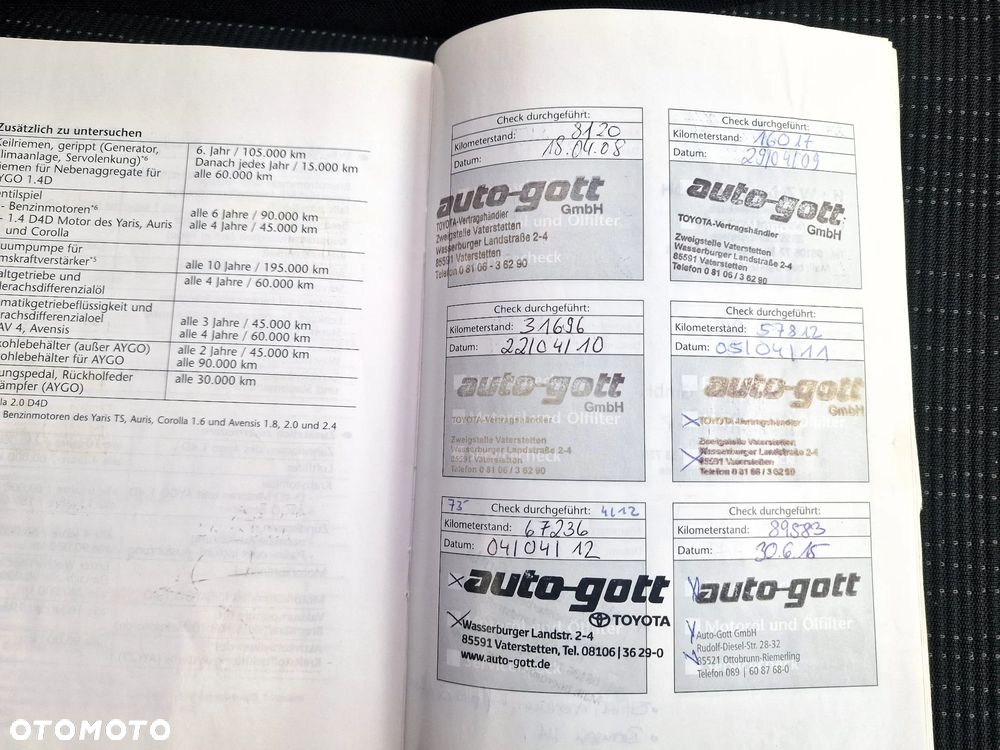 Zusätzlich zu untersuchen
Keilriemen, gerippt (Generator,
Klimaanlage, Servolenkung)*6
Riemen für Nebenaggregate für
AYGO 1.4D
6. Jahr / 105.000 km
Danach jedes Jahr / 15.000 km
alle 60.000 km
Ventilspiel
- Benzinmotoren*6
- 1.4 D4D Motor des Yaris, Auris
und Corolla
alle 6 Jahre / 90.000 km
alle 4 Jahre / 45.000 km
uumpumpe für
mskraftverstärker*5
alle 10 Jahre / 195.000 km
altgetriebe und
erachsdifferenzialöl
alle 4 Jahre / 60.000 km
matikgetriebeflüssigkeit und
erachsdifferenzialoel
AV 4, Avensis
alle 3 Jahre / 45.000 km
alle 4 Jahre / 60.000 km
kohlebehälter (außer AYGO)
ohlebehälter für AYGO
alle 2 Jahre / 45.000 km
alle 90.000 km
ungspedal, Rückholfeder
ämpfer (AYGO)
alle 30.000 km
lla 2.0 D4D
Benzinmotoren des Yaris TS, Auris, Corolla 1.6 und Avensis 1.8, 2.0 und 2.4
Check durchgeführt:
Kilometerstand: 8120
Datum: 18.04.08
auto-gott
GmbH
TOYOTA-Vertragshändler
Zweigstelle Vaterstetten
Wasserburger Landstraße 2-4
85591 Vaterstetten
Telefon 0 81 06 - 3 62 90
Check durchgeführt:
Kilometerstand: 16017
Datum: 29/04/09
auto-gott
GmbH
TOYOTA-Vertragshändler
Zweigstelle Vaterstetten
Wasserburger Landstraße 2-4
85591 Vaterstetten
Telefon 0 81 06 / 3 62 90
Check durchgeführt:
Kilometerstand: 31696
Datum: 22/04/10
auto-gott
GmbH
Motoröl und Ölfilter
TOYOTA-Vertragshändler
Zweigstelle Vaterstetten
Wasserburger Landstraße 2-4
85591 Vaterstetten
Telefon 0 81 06 / 3 62 90
Check durchgeführt:
Kilometerstand: 57812
Datum: 05/04/11
auto-gott
GmbH
Motoröl und Ölfilter
TOYOTA-Vertragshändler
Zweigstelle Vaterstetten
Wasserburger Landstraße 2-4
85591 Vaterstetten
Telefon 0 81 06 / 3 62 90
73 Check durchgeführt: 4/12
Kilometerstand: 67236
Datum: 04/04/12
auto-gott
TOYOTA
Wasserburger Landstr. 2-4
85591 Vaterstetten, Tel. 08106 | 36 29-0
www.auto-gott.de
Check durchgeführt:
Kilometerstand: 89583
Datum: 30.6.15
auto-gott
Motoröl und Ölfilter
Auto-Gott GmbH
Rudolf-Diesel-Str. 28-32
85521 Ottobrunn-Riemerling
Telefon 089 | 60 87 68-0
OTOMOTO